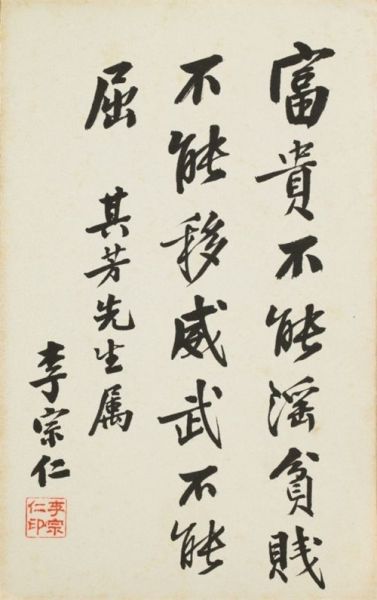 富貴不能淫貧賤
不能移威武不能
屈
其芳先生属
李宗仁
李宗仁印